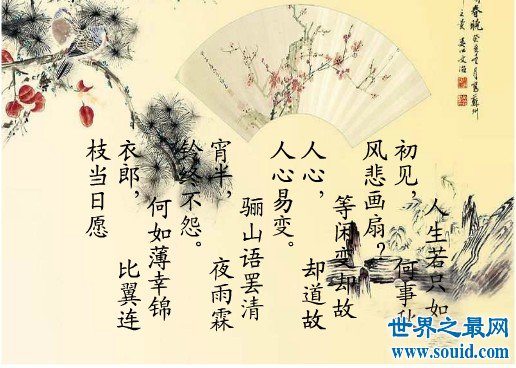 人生若只如
初见， 何事秋
风悲画扇？
等闲变却故
人心， 却道故
人心易变。
骊山语罢清
宵半， 夜雨霖
铃终不怨。
何如薄幸锦
衣郎， 比翼连
枝当日愿
世界之最网
www.souid.com